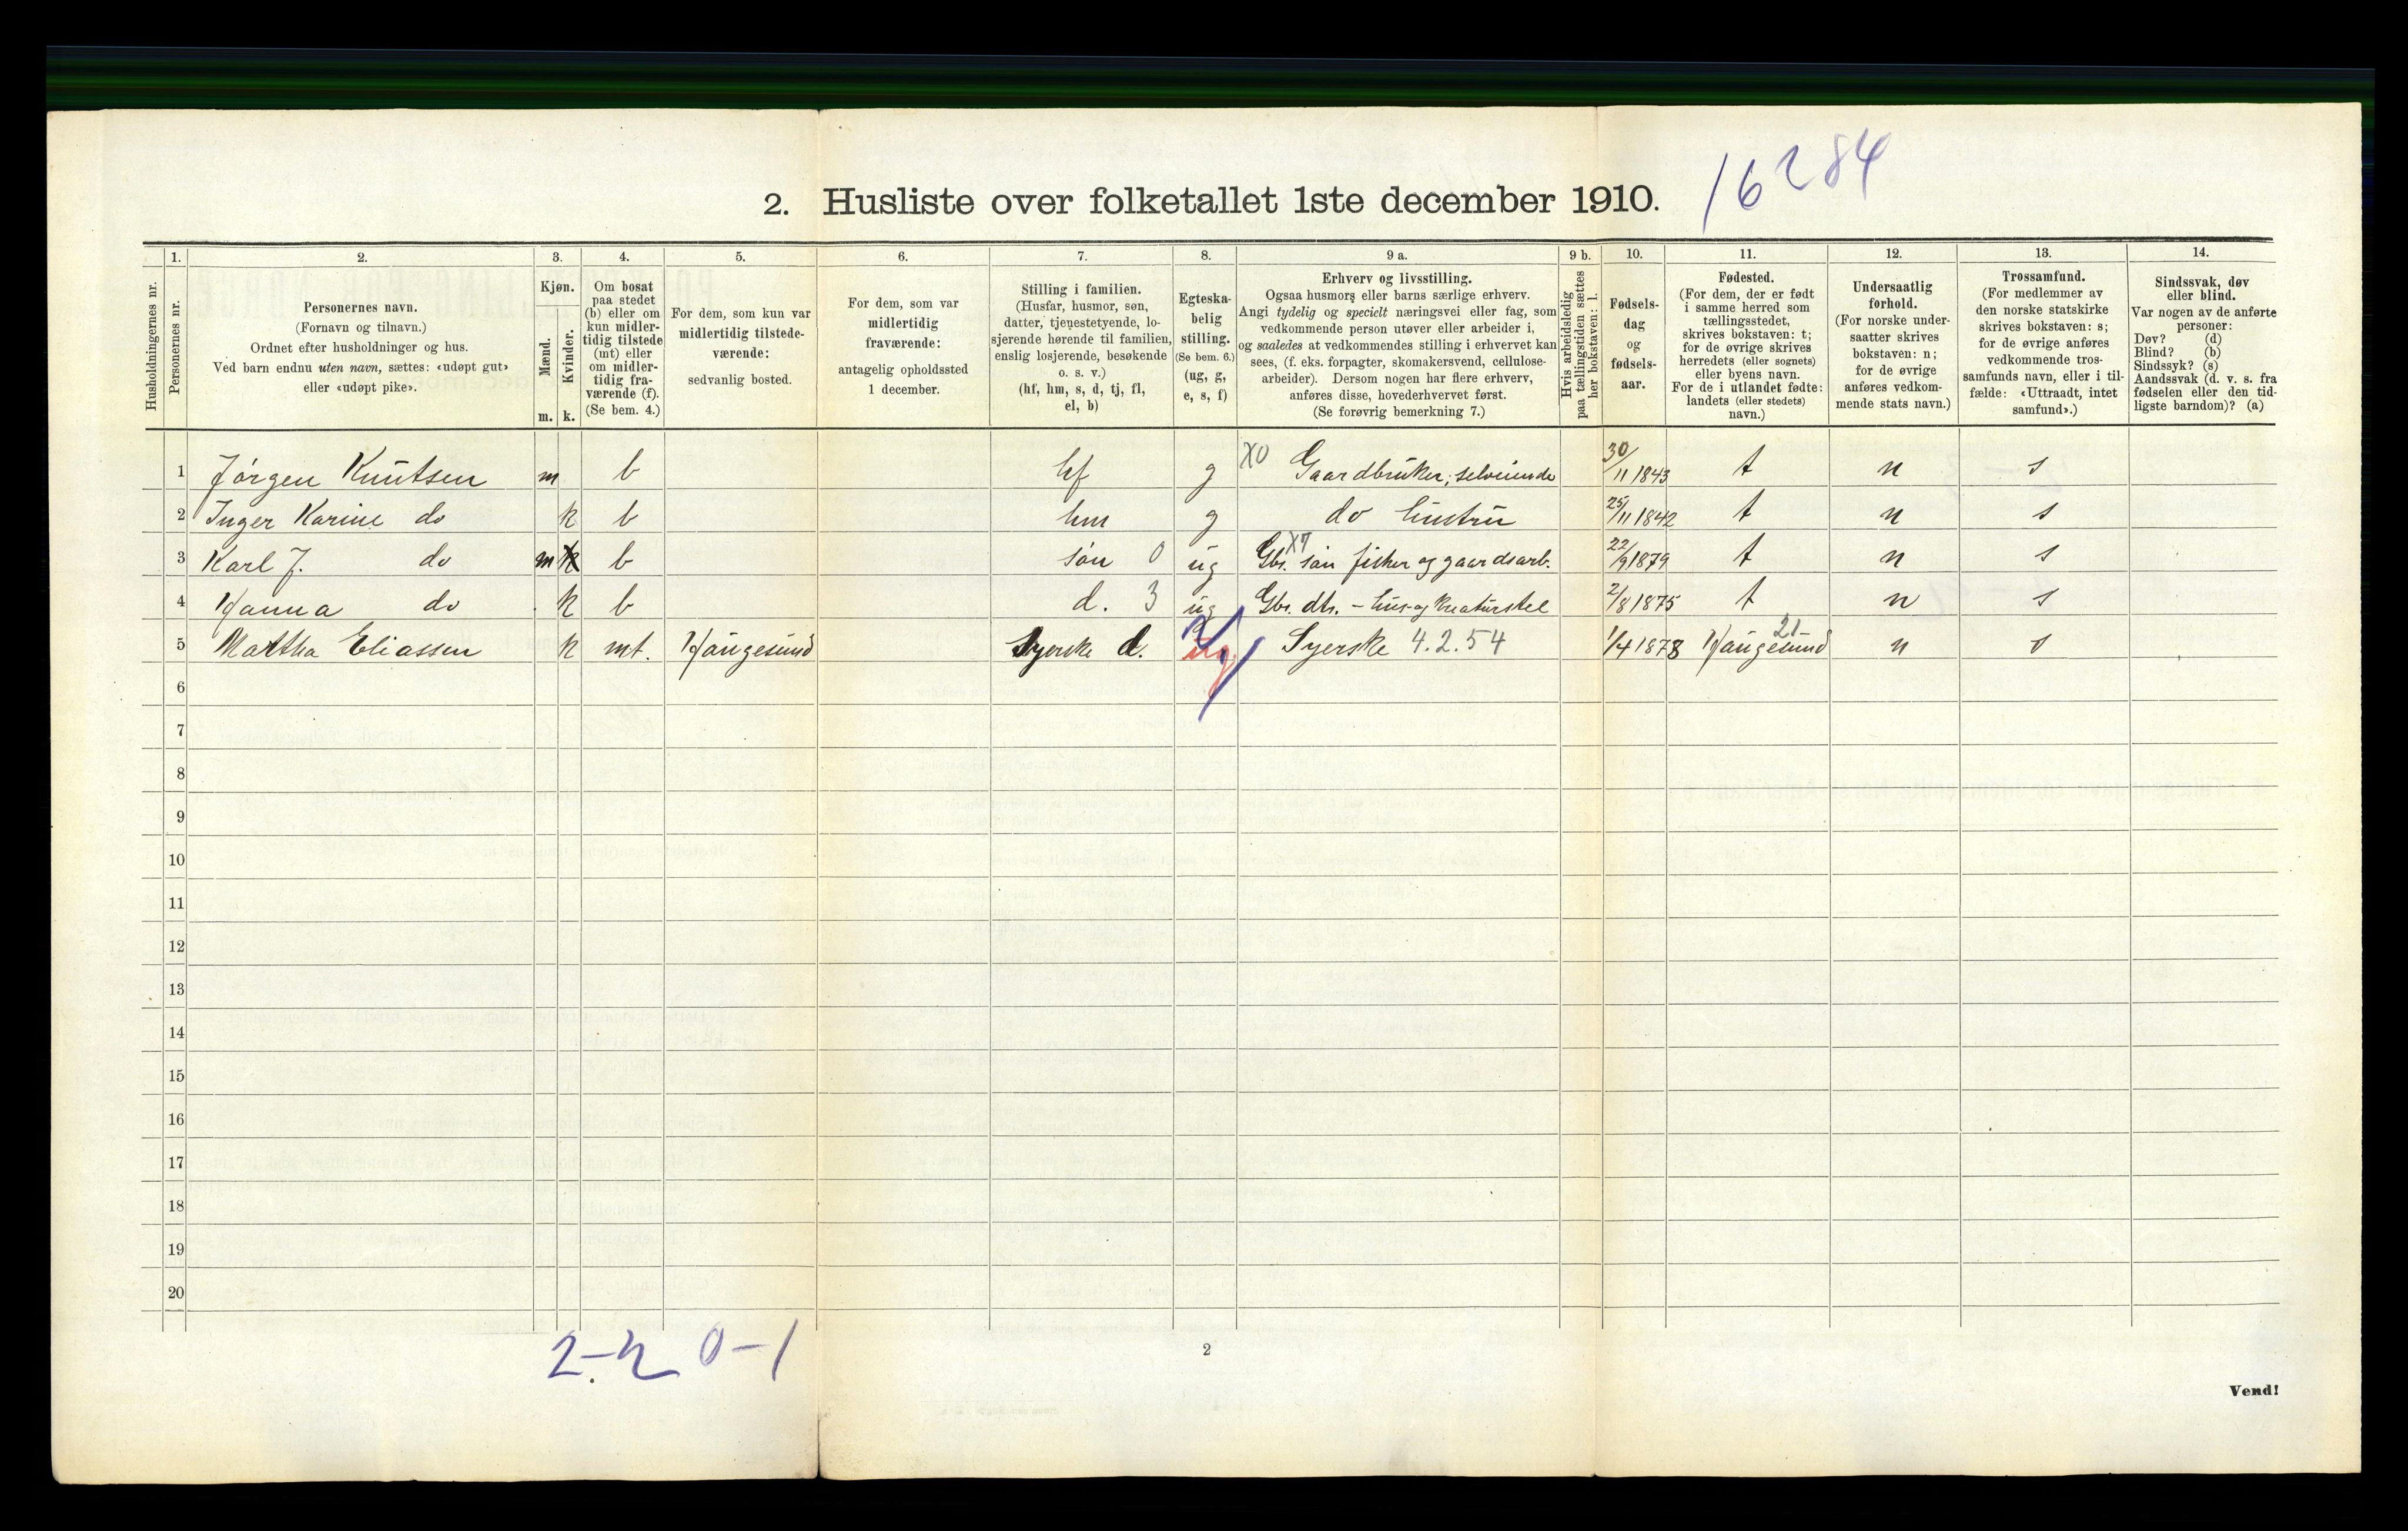 16284
2. Husliste over folketallet 1ste december 1910.
1. 2. 3. 4. 5. 6. 7. 8. 9 a. 9 b. 10. 11. 12. 13. 14.
Husholdningernes nr.
Personernes nr.
Personernes navn.
(Fornavn og tilnavn.)
Ordnet efter husholdninger og hus.
Ved barn endnu uten navn, sættes: «udøpt gut»
eller «udøpt pike».
Kjøn.
Mænd.
Kvinder.
m. k.
Om bosat
paa stedet
(b) eller om
kun midler-
tidig tilstede
(mt) eller
om midler-
tidig fra-
værende (f).
(Se bem. 4.)
For dem, som kun var
midlertidig tilstede-
værende:
sedvanlig bosted.
For dem, som var
midlertidig
fraværende:
antagelig opholdssted
1 december.
Stilling i familien.
(Husfar, husmor, søn,
datter, tjenestetyende, lo-
sjerende hørende til familien,
enslig losjerende, besøkende
o. s. v.)
(hf, hm, s, d, tj, fl,
el, b)
Egteska-
belig
stilling.
(Se bem. 6.)
(ug, g,
e, s, f)
Erhverv og livsstilling.
Ogsaa husmors eller barns særlige erhverv.
Angi tydelig og specielt næringsvei eller fag, som
vedkommende person utøver eller arbeider i,
og saaledes at vedkommendes stilling i erhvervet kan
sees, (f. eks. forpagter, skomakersvend, cellulose-
arbeider). Dersom nogen har flere erhverv,
anføres disse, hovederhvervet først.
(Se forøvrig bemerkning 7.)
Hvis arbeidsledig
paa tællingstiden sættes
her bokstaven: l.
Fødsels-
dag
og
fødsels-
aar.
Fødested.
(For dem, der er født
i samme herred som
tællingsstedet,
skrives bokstaven: t;
for de øvrige skrives
herredets (eller sognets)
eller byens navn.
For de i utlandet fødte:
landets (eller stedets)
navn.)
Undersaatlig
forhold.
(For norske under-
saatter skrives
bokstaven: n;
for de øvrige
anføres vedkom-
mende stats navn.)
Trossamfund.
(For medlemmer av
den norske statskirke
skrives bokstaven: s;
for de øvrige anføres
vedkommende tros-
samfunds navn, eller i til-
fælde: «Uttraadt, intet
samfund».)
Sindssvak, døv
eller blind.
Var nogen av de anførte
personer:
Døv? (d)
Blind? (b)
Sindssyk? (s)
Aandssvak (d. v. s. fra
fødselen eller den tid-
ligste barndom)? (a)
1 Jórgen Knutsen m b hf g X0 Gaardbruker, selveiende 30/11 1843 t n s
2 Inger Karine do k b hm g do hustru 25/11 1842 t n s
3 Karl J. do m k b són 0 ug X7 Gbr. són fisker og gaardsarb. 22/9 1879 t n s
4 Hanna do k b d. 3 ug Gbr. dtr. - hus- og kreaturstel 2/8 1875 t n s
5 Martha Eliassen k mt. Haugesund Syerske d. ug Syerske 4.2.54 1/4 1878 Haugesund 21 n s
6
7
8
9
10
11
12
13
14
15
16
17
18
19
20
2-2 0-1
2
Vend!